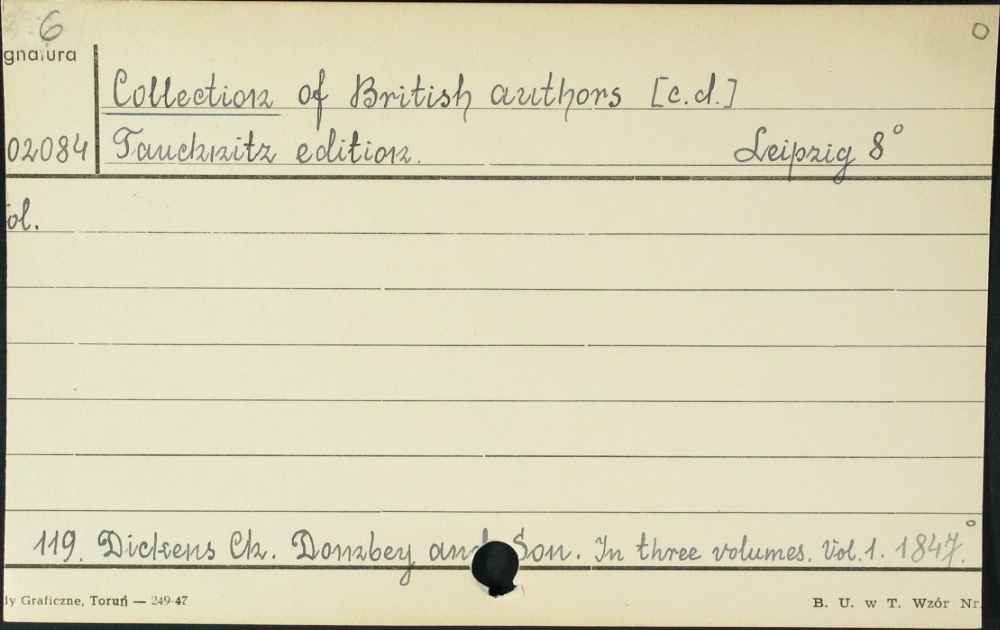 6
gnatura
Collection of British authors [c.d.]
02084 Tauchnitz edition. Leipzig 8°
ol.
119. Dickens Ch. Dombey and Son. In three volumes. Vol. 1. 1847.°
dy Graficzne, Toruń — 249-47 B. U. w T. Wzór Nr.